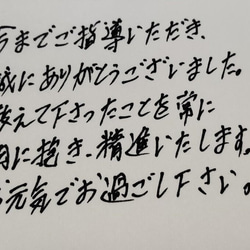 今までご指導いただき、
誠にありがとうございました。
教えて下さったことを常に
胸に抱き、精進いたします。
元気でお過ごし下さい